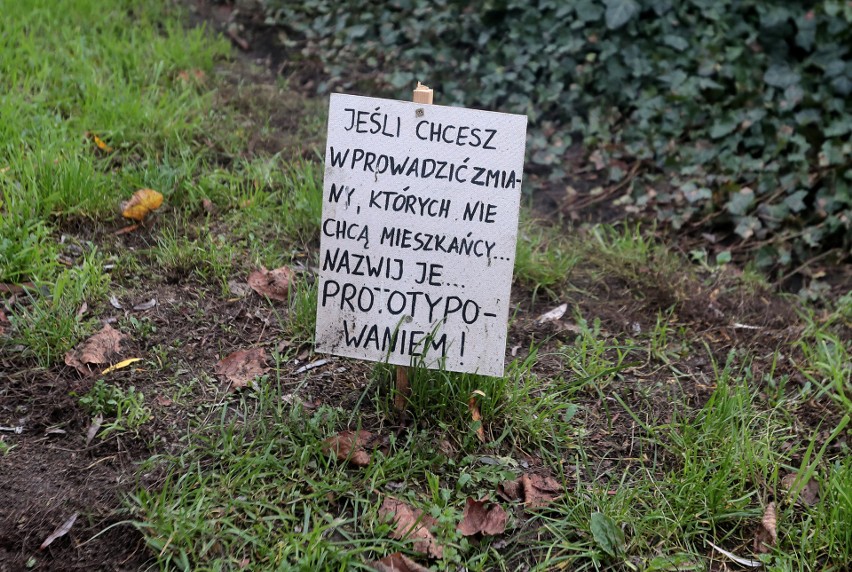 JEŚLI CHCESZ
WPROWADZIĆ ZMIA-
NY, KTÓRYCH NIE
CHCĄ MIESZKAŃCY...
NAZWIJ JE....
PROTOTYPO-
WANIEM!